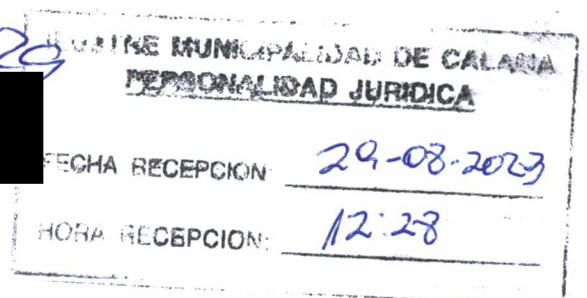 29
ILUSTRE MUNICIPALIDAD DE CALAMA
PERSONALIDAD JURIDICA
FECHA RECEPCION: 29-08-2023
HORA RECEPCION: 12:28